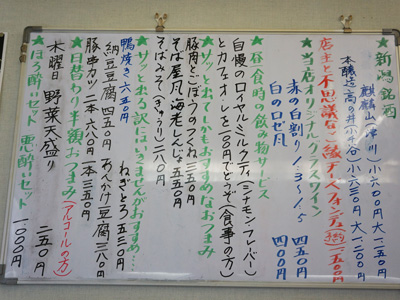 ★新潟銘酒
麒麟山(津川) 小六〇〇円 大一、一五〇円
本醸造高の井(小千谷) 小六三〇円 大一、二〇〇円
店主と不思議な
★当店オリジナルグラスワイン
赤の白割り 1:3〜1.5 四五〇円
白のロゼ風 四〇〇円
★昼食時の飲み物サービス
自慢のロイヤルミルクティ(シナモン・フレーバー)
とカフェ・オ・レを100円でどうぞ(食事の方)
★サッと出てしかもおすすめなおつまみ
豚肉とごぼうのつくね 三五〇円
そば屋風海老しんじょ 五五〇円
そばみそ(きゅうり) 二八〇円
★サッと出る訳にはいきませんがおすすめ…
鴨焼き 六五〇円 ねぎとろ 五三〇円
納豆豆腐 四五〇円 あんかけ豆腐 三八〇円
豚串カツ 一本 六八〇円 一本 三五〇円
★日替わり半額おつまみ(アルコールの方)
木曜日 野菜天盛り 二五〇円
★ほろ酔いセット 悪酔いセット 一〇〇〇円